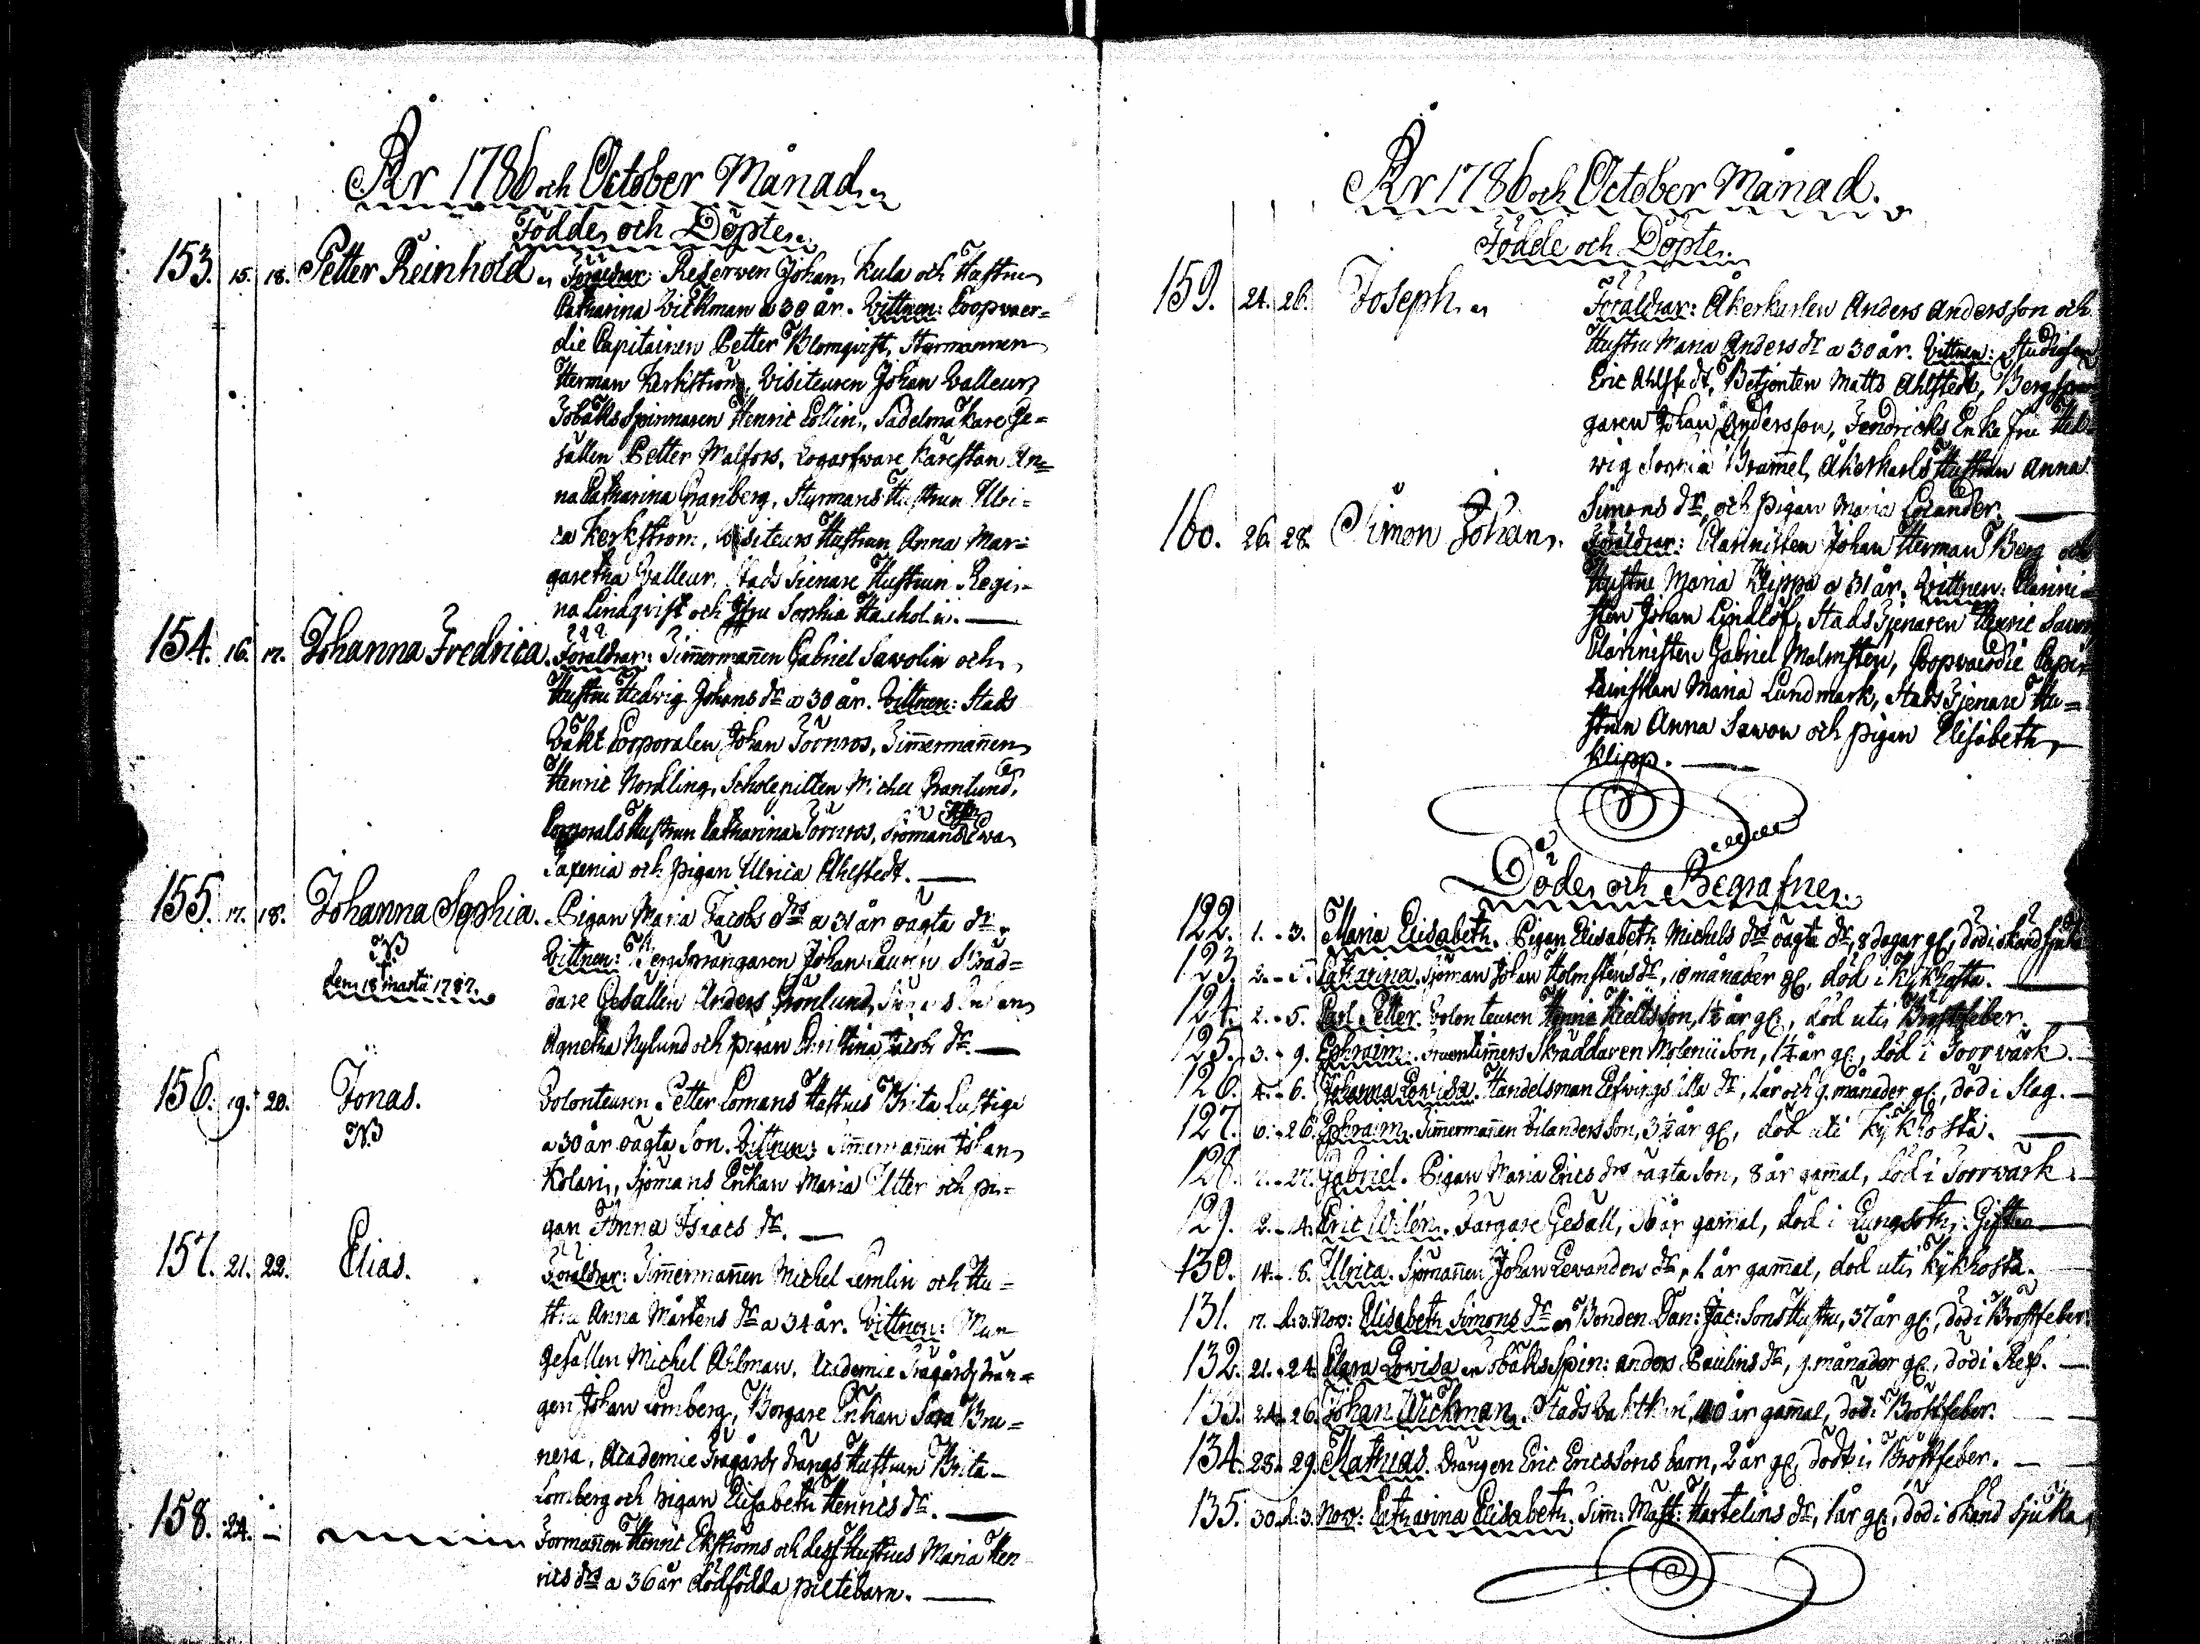 År 1786 och October Månad.
Födde och Döpte.
153. 15. 18. Petter Reinhold. Föräldrar: Reserwen Johan Kula och Hustru
Catharina Wickman a 30 år. Vittnen: Coopvaer=
die Capitainen Petter Blomqvist, Styrmannen
Herman Kerkström, Visiteuren Johan Valleur,
Tobaks Spinnaren Henric Collin, Sadelmakare Ge=
sällen Petter Malfors, Logarfware Kärestan An=
na Catharina Granberg, Styrmans Hustrun Ulri=
ca Kerkström, Visiteurs Hustrun Anna Mar=
garetha Valleur, Stads Tienare Hustrun Regi=
na Lindqvist och Jfru Sophia
154. 16. 17. Johanna Fredrica. Föräldrar: Timmermannen Gabriel Sawolin och
Hustru Hedvig Johans dr a 30 år. Vittnen: Stads
Vakt Corporalen Johan Törnros, Timmermannen
Henric Nordling, Scholepilten Michel Granlund,
Corporals Hustrun Catharina Törnros, Sjömans Ewa
och pigan Ulrica Ahlstedt.
155. 17. 18. Johanna Sophia. Pigan Maria Jacobs drs a 31 år oägta dr.
NB Vittnen: Johan Skräd=
den 18 Martii 1787. dare Gesällen Anders Grönlund,
Agnetha Nylund och pigan Christina Jacobs dr.
156. 19. 20. Jonas. Volonteuren Petter Lomans Hustrus Brita Lustigs
NB a 30 år oägta Son. Vittnen: Timmermannen Johan
Kolari, Sjömans Enkan Maria Utter och pi=
gan Anna Isaacs dr.
157. 21. 22. Elias. Föräldrar: Timmermannen Michel Lemlin och Hu=
stru Anna Mårtens dr a 34 år. Vittnen: Mur
Gesällen Michel Ahlman, Academie Trägårds drän=
gen Johan Lomberg, Borgare Enkan Sara Bru=
nera, Academie Trägårds drängs Hustrun Brita
Lomberg och pigan Elisabeth Henrics dr.
158. 24. — Formannen Henric Ekströms och dess Hustrus Maria Hen
rics drs a 36 år dödfödda piltebarn.
År 1786 och October Månad.
Födde och Döpte.
159. 24. 26. Joseph. Föräldrar: Åkerkarlen Anders Andersson och
Hustru Maria Anders dr a 30 år. Vittnen:
Eric Ahlstedt, Betjenten Matts Ahlstedt,
garen Johan Andersson, Fendricks Enke Fru Hed=
wig Sophia Brummel, Åkerkarls Hustrun Anna
Simons dr och pigan Maria
160. 26. 28. Simon Johan. Föräldrar: Clarinisten Johan Herman Berg och
Hustru Maria Klippa a 31 år. Vittnen: Clarini=
sten Johan Lindlöf, Stads Tjenaren Henric Sawon
Clarinisten Gabriel Malmsten, Coopvaerdie Capi=
tainskan Maria Lundmark, Stads Tjenare Hu=
strun Anna Sawon och pigan Elisabeth
Klipp.
Döde och Begrafne.
122. 1. - 3. Maria Elisabeth. Pigan Elisabeth Michels drs oägta dr, 8 dagar gl, död i okänd sjuka
123. 2. - 5. Catharina. Sjöman Johan Holmstens dr, 10 månader gl, död i Kykhosta.
124. 2. - 5. Carl Petter. Volonteuren Henric Kieltsson, 1½ år gl, död uti Bröstfeber.
125. 3. - 9. Ephraim. Fruentimmers Skräddaren Molenii Son, 1¼ år gl, död i Torrvärk.
126. 4. - 6. Johanna Lowisa. Handelsman dr, 1 år och 9 månader gl, död i Slag.
127. 6. - 26. Ephraim. Timmermannen Vilanders Son, 3½ år gl, död uti Kykhosta.
128. - 27. Gabriel. Pigan Maria Erics drs oägta Son, 8 år gammal, död i Torrvärk.
129. 2. - 4. Eric Wilén. Färgare Gesäll, 56 år gammal, död i Lungsot, Gifter
130. 14. - 18. Ulrica. Sjömannen Johan Levanders dr, 1 år gammal, död uti Kykhosta.
131. 17. d. 3. Nov: Elisabeth Simons dr Bonden Dan: Jac: Sons Hustru, 37 år gl, död i Bröstfeber.
132. 21. - 24. Clara Lowisa Tobaks Spin: Anders Paulins dr, 9 månader gl, död i Ref.
133. 24. 26. Johan Wickman. Stads Vaktkarl, 40 år gammal, död i Bröstfeber.
134. 25. 29. Mathias. Drängen Eric Ericssons barn, 2 år gl, dödt i Bröstfeber.
135. 30. d. 3. Nov: Catharina Elisabeth. Tim: Matt: Hartelins dr, 1 år gl, död i okänd sjuka